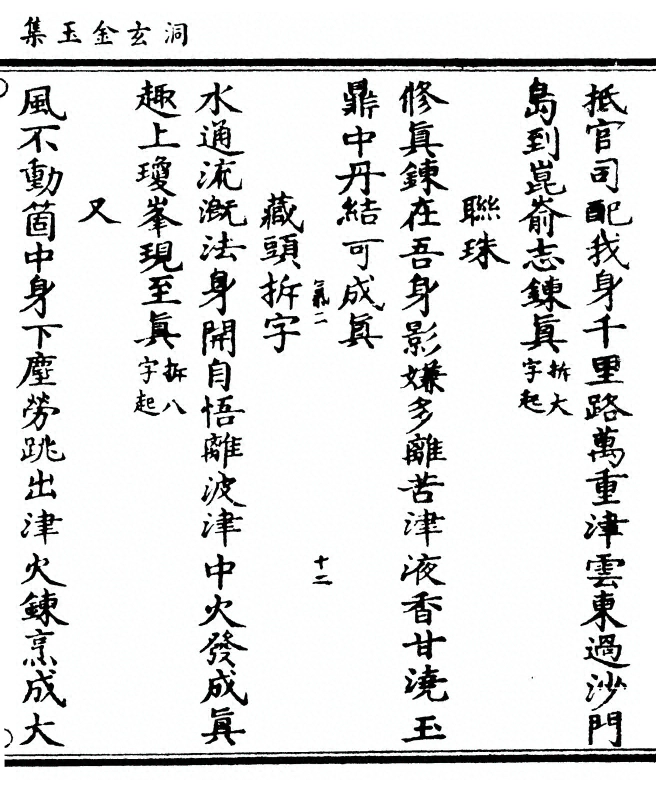 洞玄金玉集
抵官司配我身千里路萬重津雲東過沙門
島到崑崳志鍊眞拆大字起
聯珠
修眞鍊在吾身影嫌多離苦津液香甘澆玉
鼎中丹結可成眞
氣二
十二
藏頭拆字
水通流溉法身開自悟離波津中火發成眞
趣上瓊峯現至眞拆八字起
又
風不動箇中身下塵勞跳出津火鍊烹成大